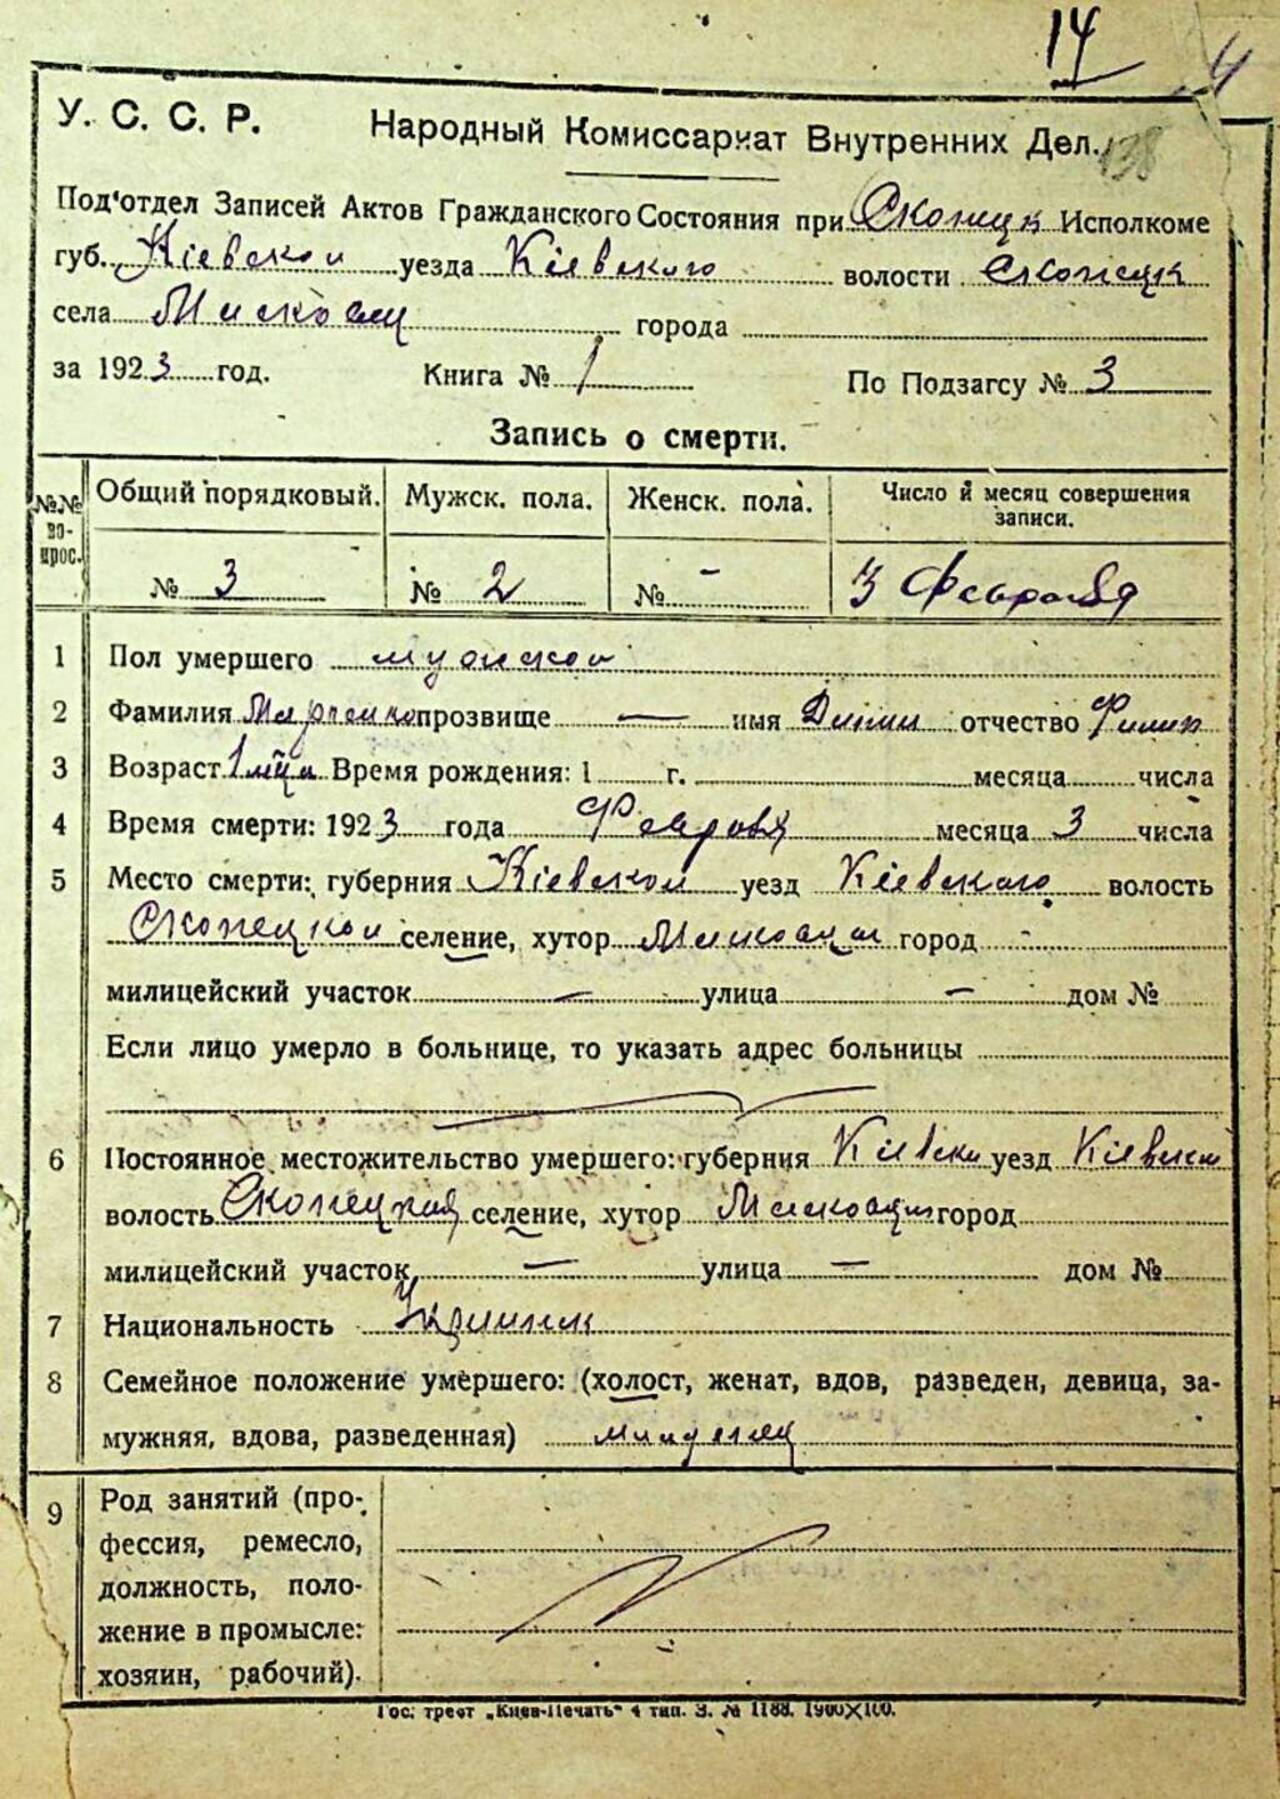 14
4
138
У. С. С. Р. Народный Комиссариат Внутренних Дел.
Под'отдел Записей Актов Гражданского Состояния при Скопецк Исполкоме
губ. Кіевской уезда Кіевского волости Скопецк
села города
за 1923 год. Книга № 1 По Подзагсу № 3
Запись о смерти.
№№ во-прос. Общий порядковый. Мужск. пола. Женск. пола. Число и месяц совершения записи.
№ 3 № 2 № - 3 Февраля
1 Пол умершего мужской
2 Фамилия Марченко прозвище — имя отчество Филип
3 Возраст 1 Время рождения: 1 г. месяца числа
4 Время смерти: 1923 года Февраля месяца 3 числа
5 Место смерти: губерния Кіевской уезд Кіевского волость
Скопецкой селение, хутор город -
милицейский участок — улица — дом №
Если лицо умерло в больнице, то указать адрес больницы
6 Постоянное местожительство умершего: губерния Кіевской уезд Кіевском
волость Скопецкая селение, хутор город
милицейский участок — улица — дом №
7 Национальность
8 Семейное положение умершего: (холост, женат, вдов, разведен, девица, за-
мужняя, вдова, разведенная) младенец
9 Род занятий (про-
фессия, ремесло,
должность, поло-
жение в промысле:
хозяин, рабочий).
Гос. трест „Киев-Печать" 4 тип. З. № 1188. 1900X100.